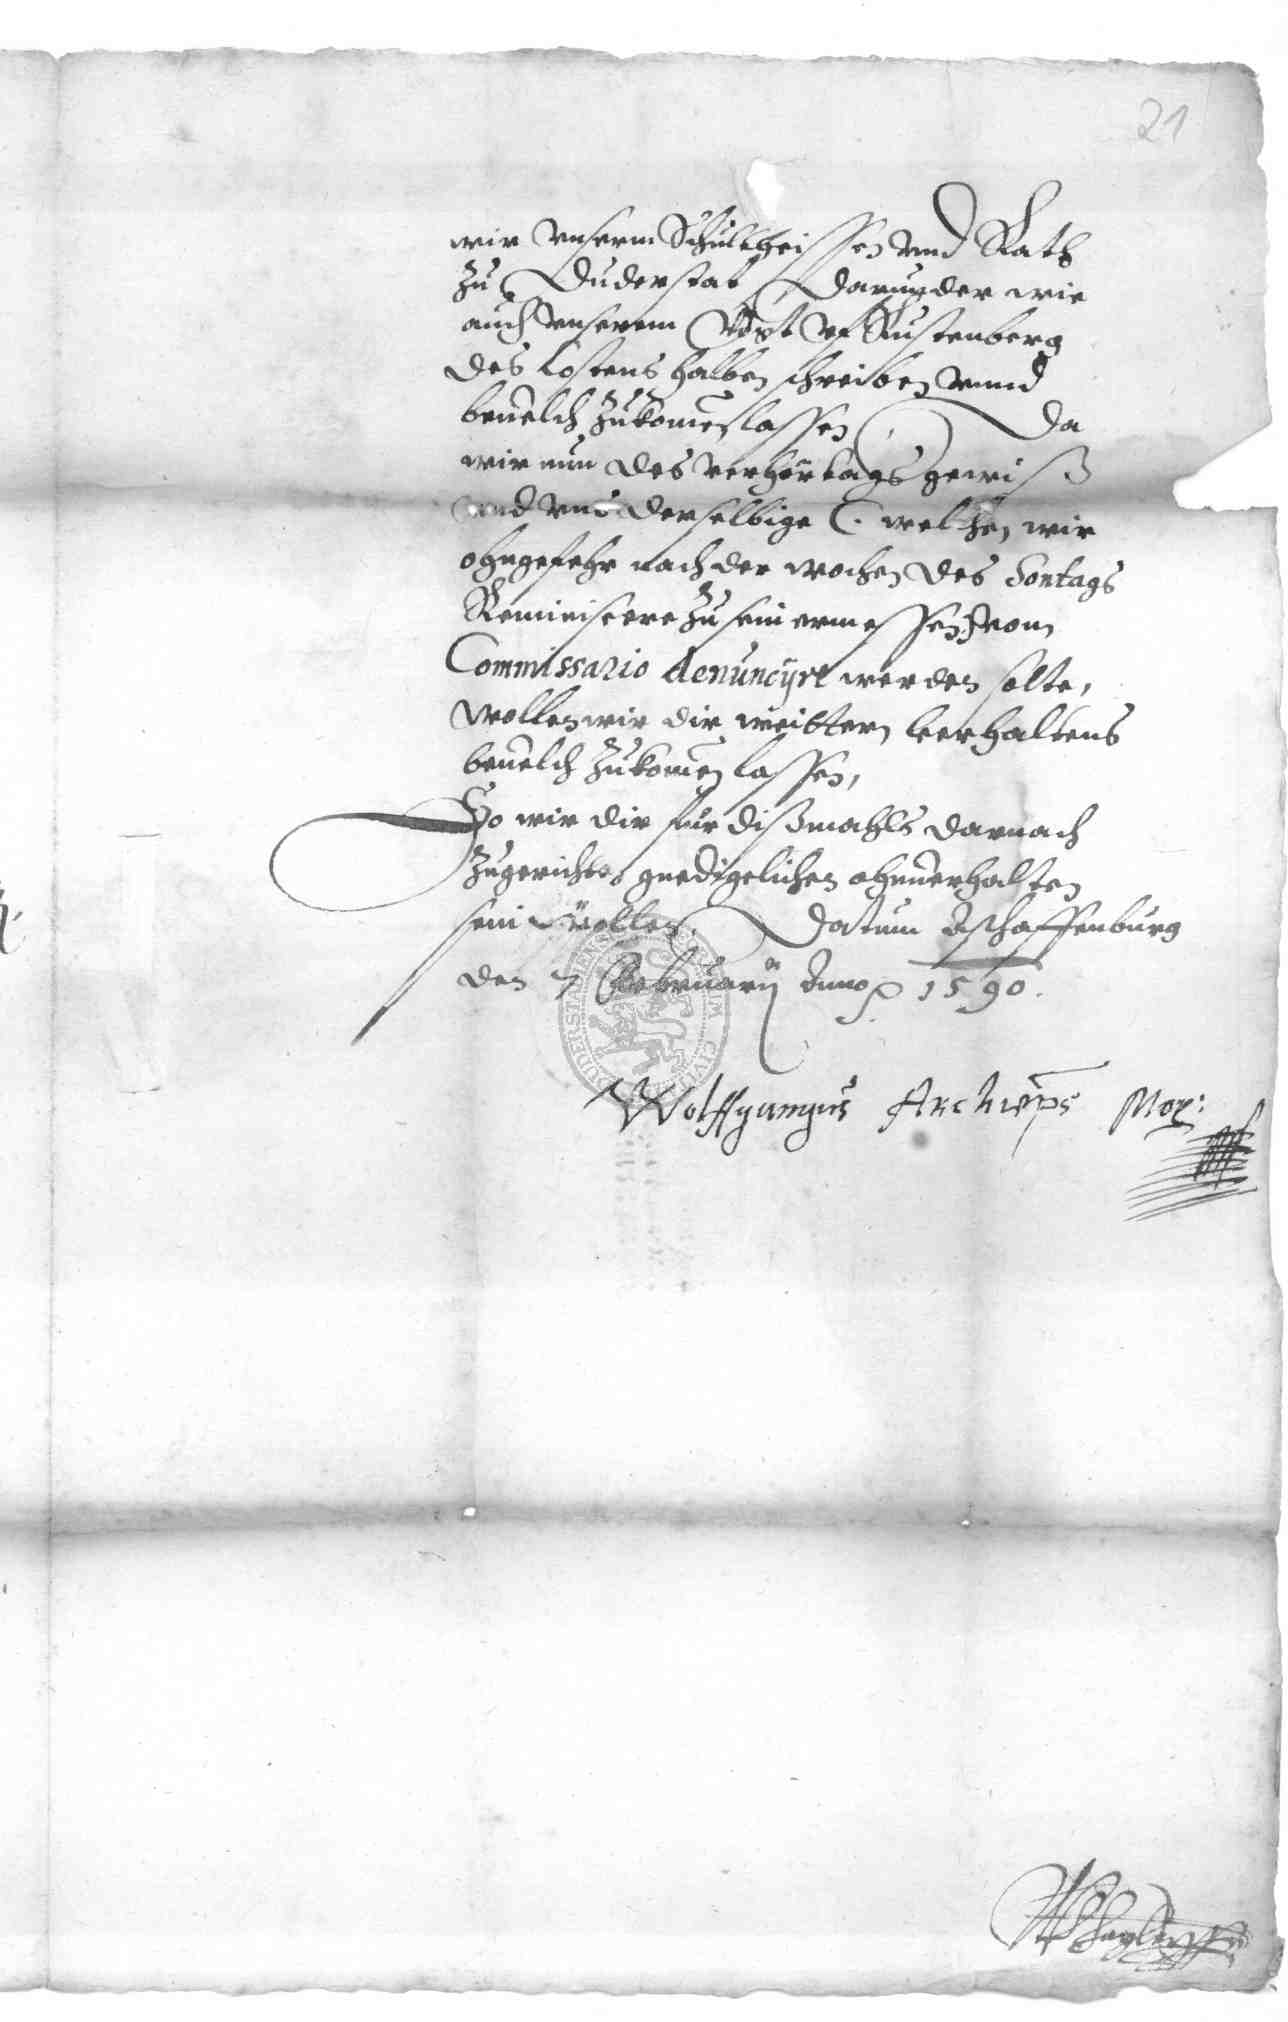 21
wir vnserm Schultheissen vnd Rath
zu Duderstat, darunder wie
auch vnserem Vogt vf Rustenberg
des Costens halben schreiben vnnd
beuelch zukomen lassen, Da
wir nun des verhörtags gewiß
vnd vns derselbige (: welchen wir
ohngefehr nach der wochen des Sontags
Reminiscere zu sein ermessen :) vom
Commissario denuncijrt werden solte,
wollen wir dir weittern verhaltens
beuelch zukomen lassen,
So wir dir für dißmahls darnach
zugerichten gnediglichen ohnuerhalten
sein wollen. Datum Aschaffenburg
den 7 Februarij Anno p 1590.
Wolffgangus Archieps Mog: